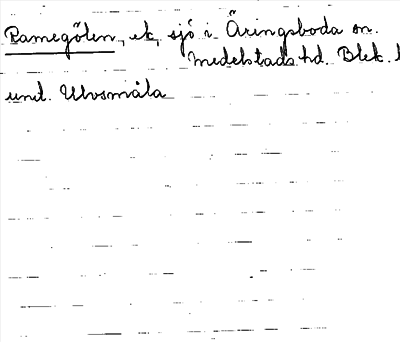 Ramegölen, ek, sjö i Eringsboda sn.
Medelstads hd. Blek. l
und. Ulvsmåla